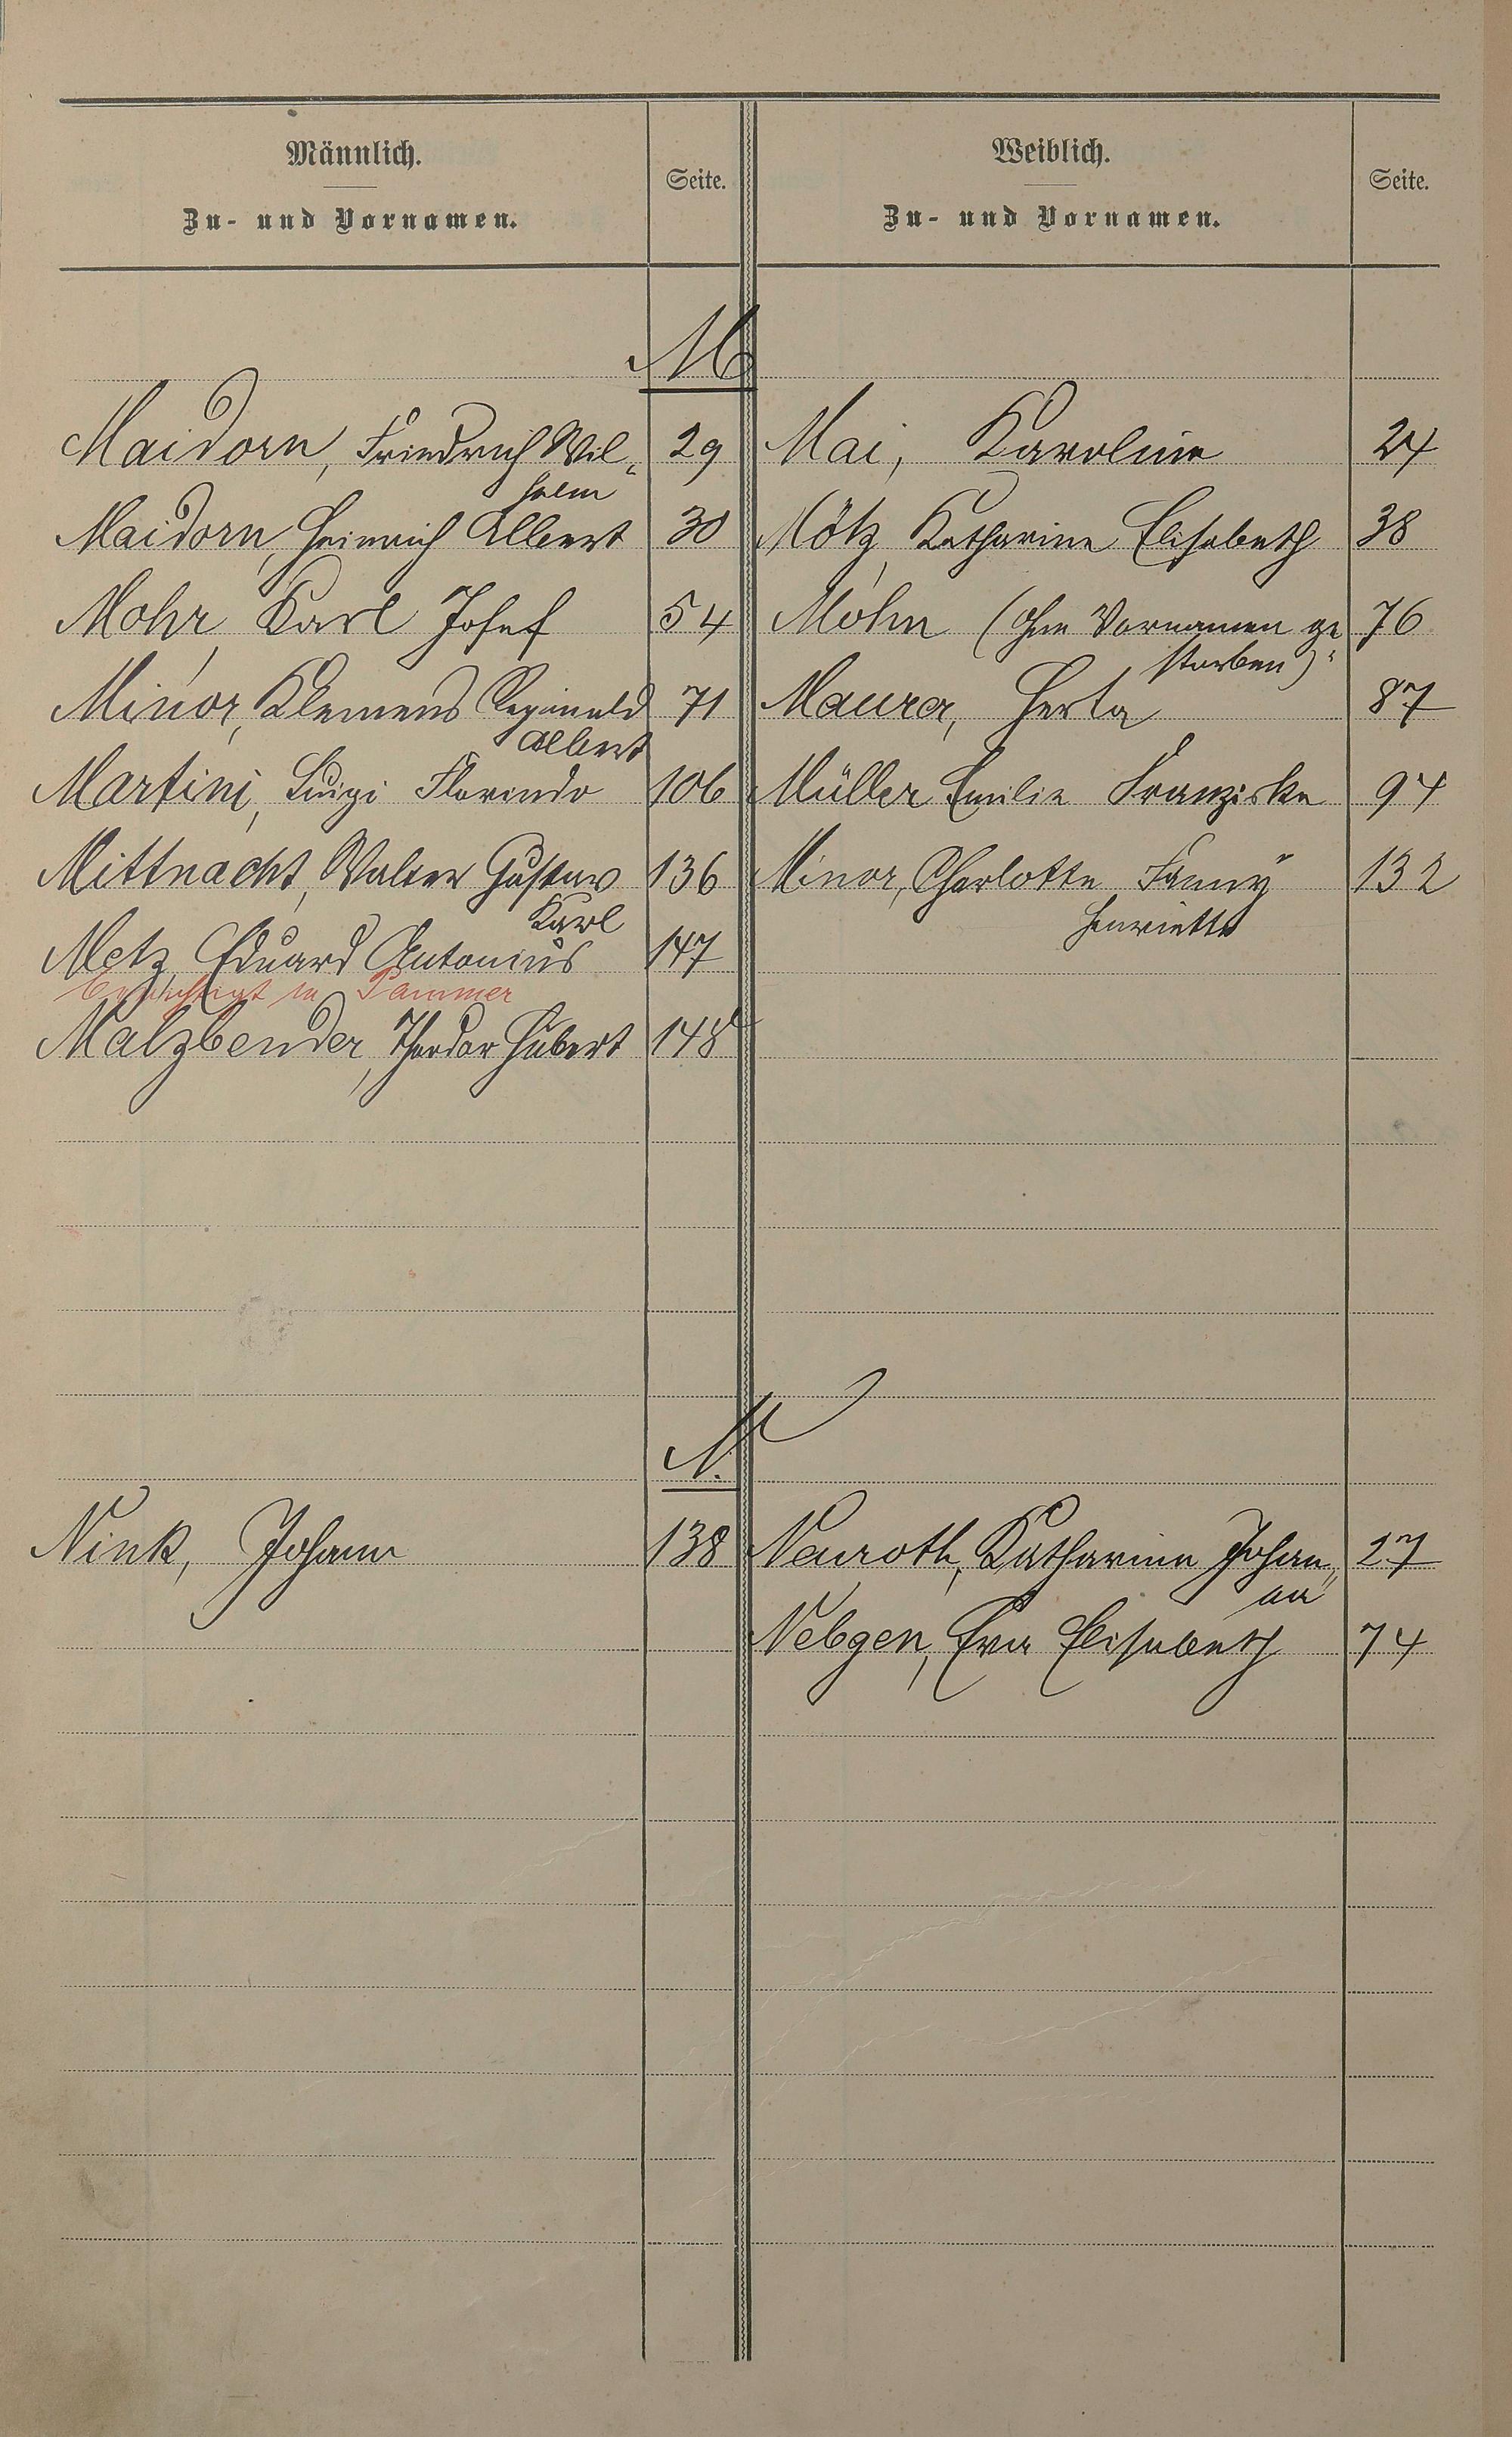 Männlich.
Zu- und Vornamen.
Seite.
Weiblich.
Zu- und Vornamen.
Seite.
M
Maidorn, Friedrich Wil- 29 Mai, Karoline 24
helm
Maidorn, Heinrich Albert 30 Mötz, Katharine Elisabeth 38
Mohr, Karl Josef 54 Mohn (ohne Vornamen ge- 76
storben)
Minor, Klemens Reginald 71 Maurer, Herta 87
Albert
Martini, Luigi Florindo 106 Müller Emilie Franziska 94
Mittnacht, Walter Gustav 136 Minor, Charlotte Fanny 132
Karl
Henriette
Metz, Eduard Antonius 147
berichtigt in Pammer
Malzbender, Theodor Hubert 148
N.
Nink, Johann 138 Neuroth, Katharina Johan- 27
na
Nebgen, Eva Elisabeth 74